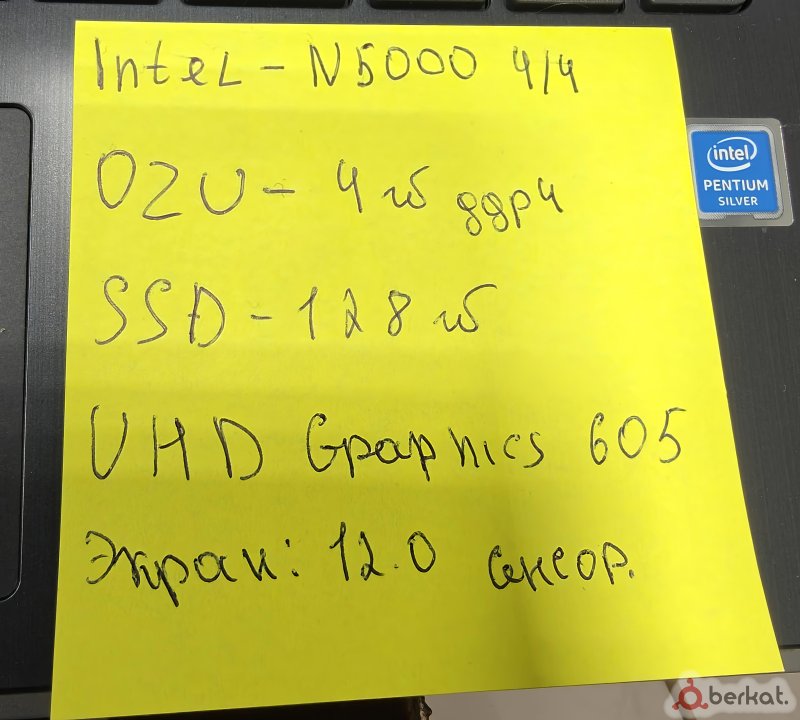 Intel - N5000 4/4
OZU - 4 гб ддр4
SSD - 128 гб
UHD Graphics 605
Экран: 12.0 сенсор.
intel
PENTIUM
SILVER
berkat.